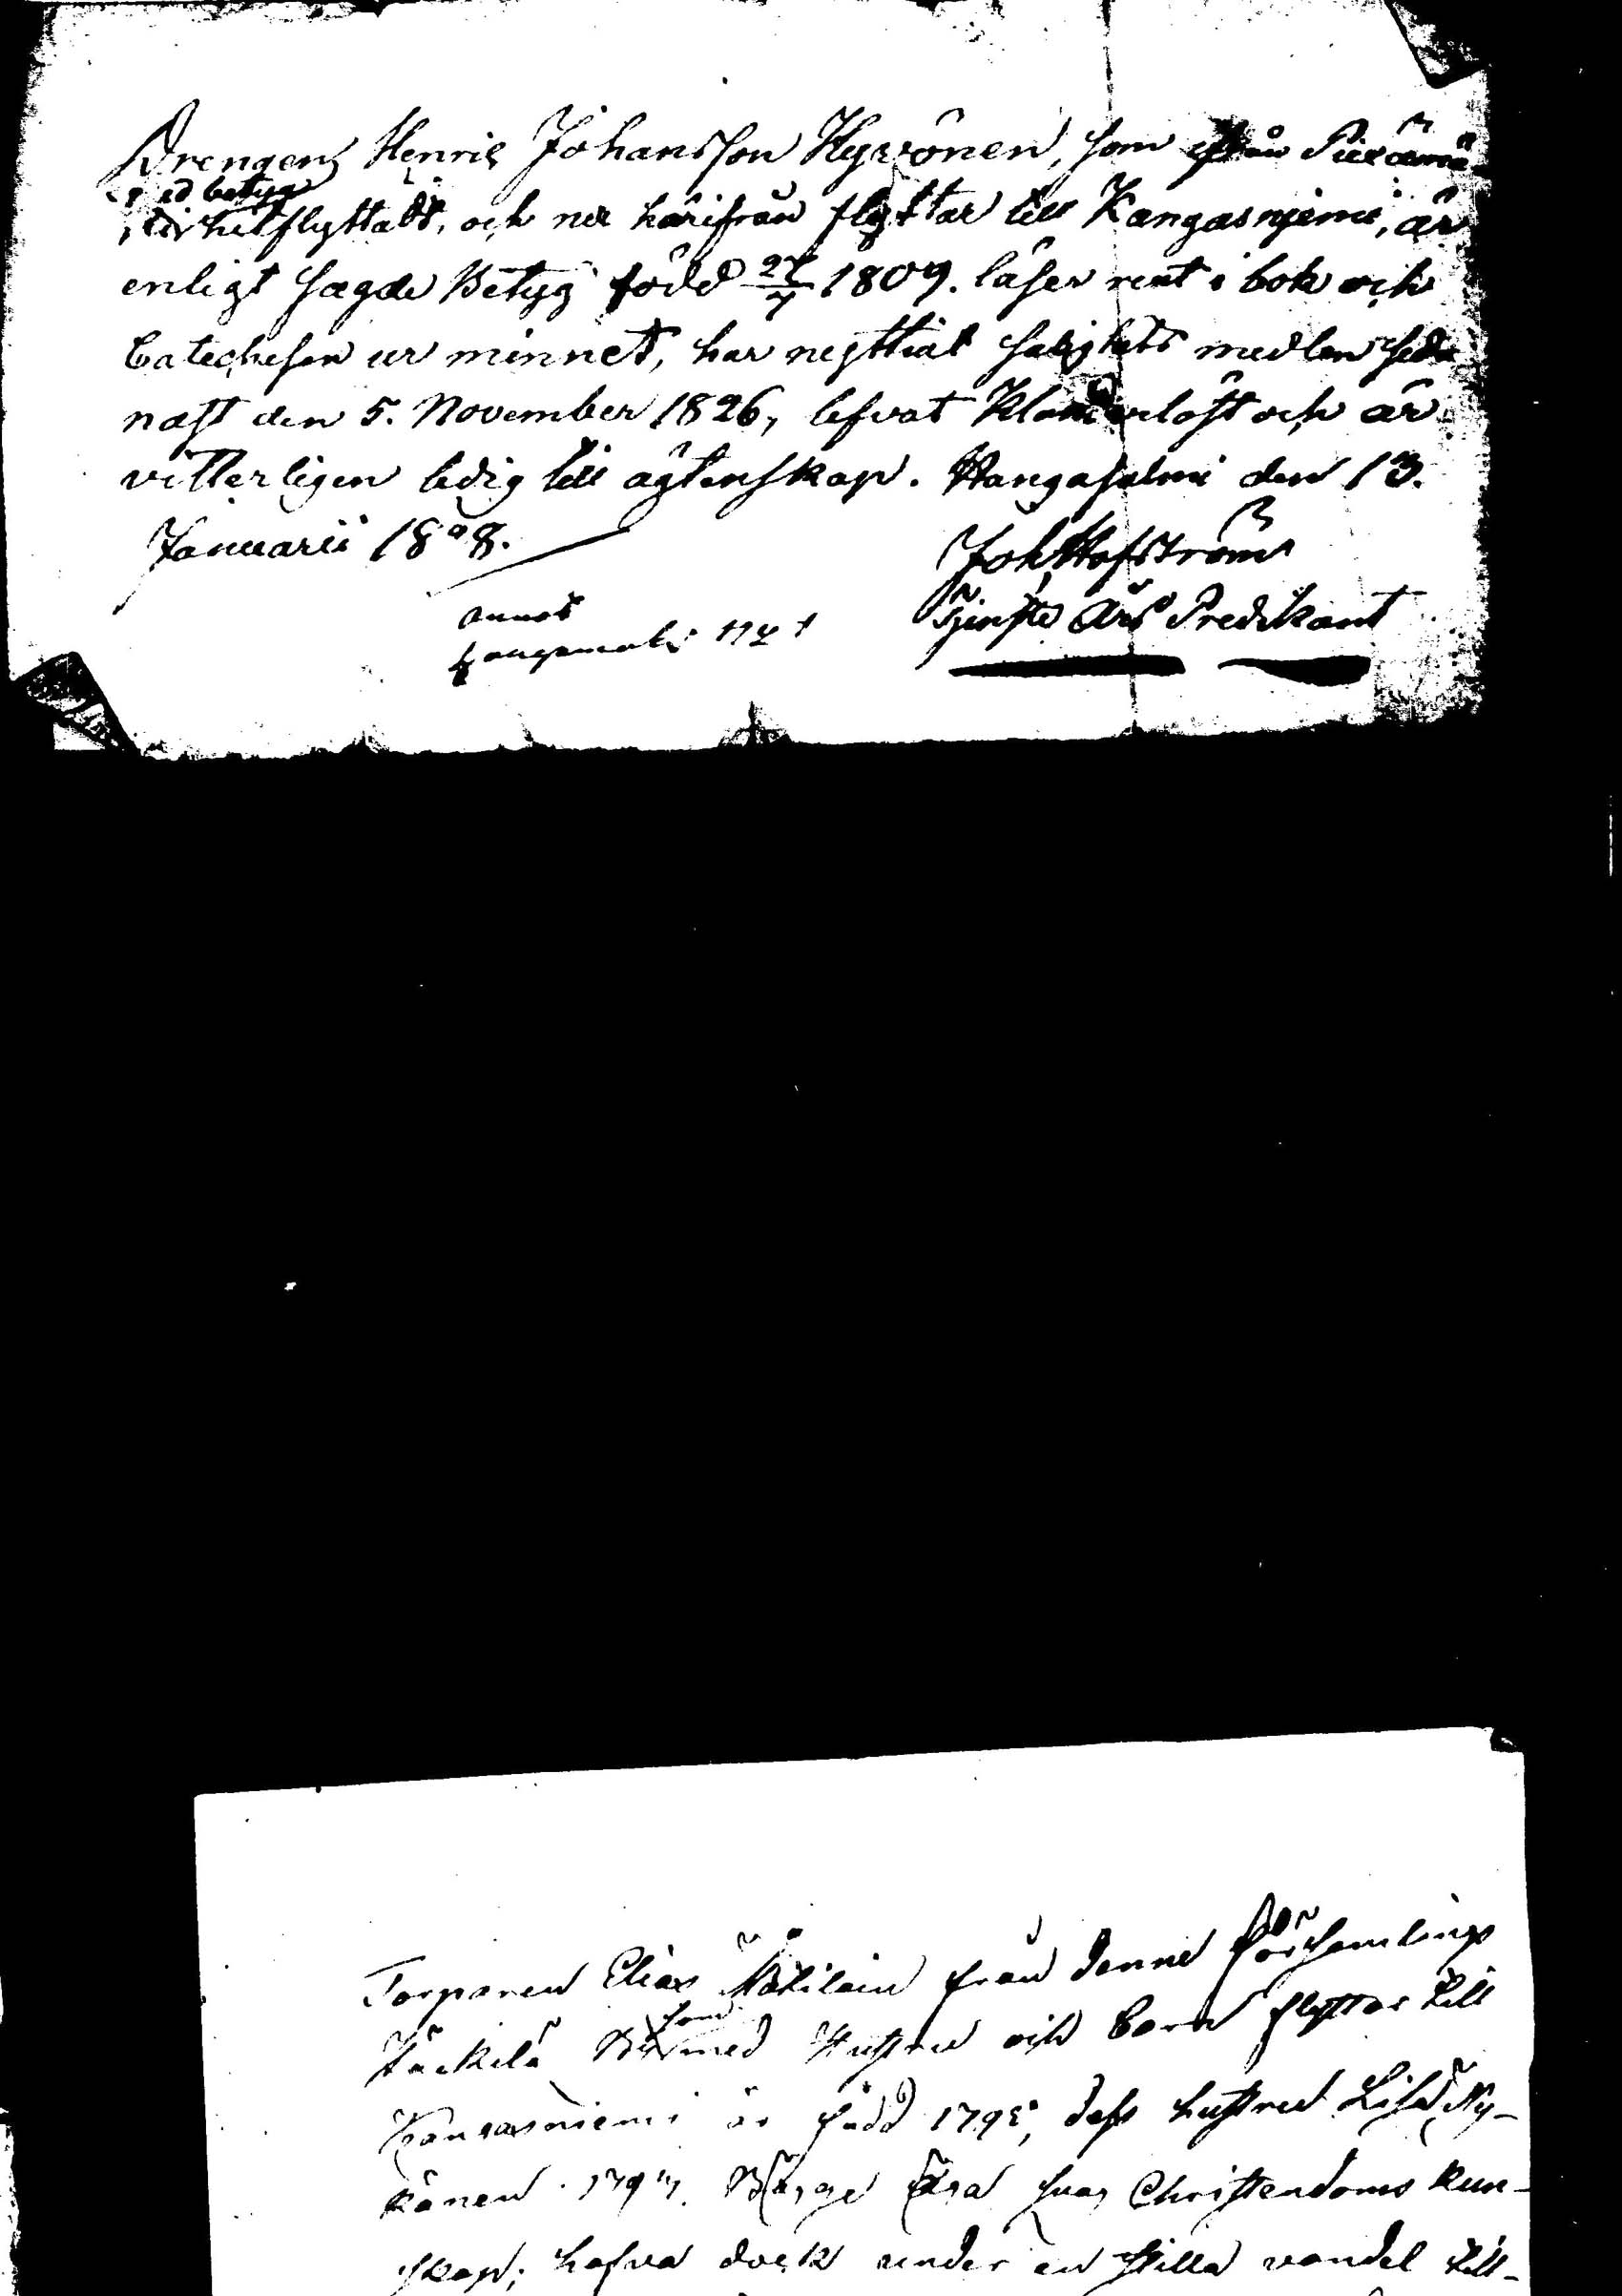 Drengen Henric Johansson Hyvönen, som ifrån Piexämä
med betyg
hitflyttadt, och nu härifrån flyttar till Kangasnjemi, är
enligt sagde Betyg född 27/7 1809. läser rent i bok och
Catechesen ur minnet, har nyttiat salighets medlen seda
nast den 5. November 1826, lefvat Klanderlöst och är
vitterligen ledig till ägtenskap. Hangasalmi den 13.
Januarii 1828.
Joh Hofström
Tjenste Års Predikant
Torparen Elias från denne församlings
som
med Hustru och barn flyttar till
Kangasniemi är född 179 dess hustru Lisa Ny-
känen 179 Christendoms kun-
skap; hafva dock under en stilla vandel till-